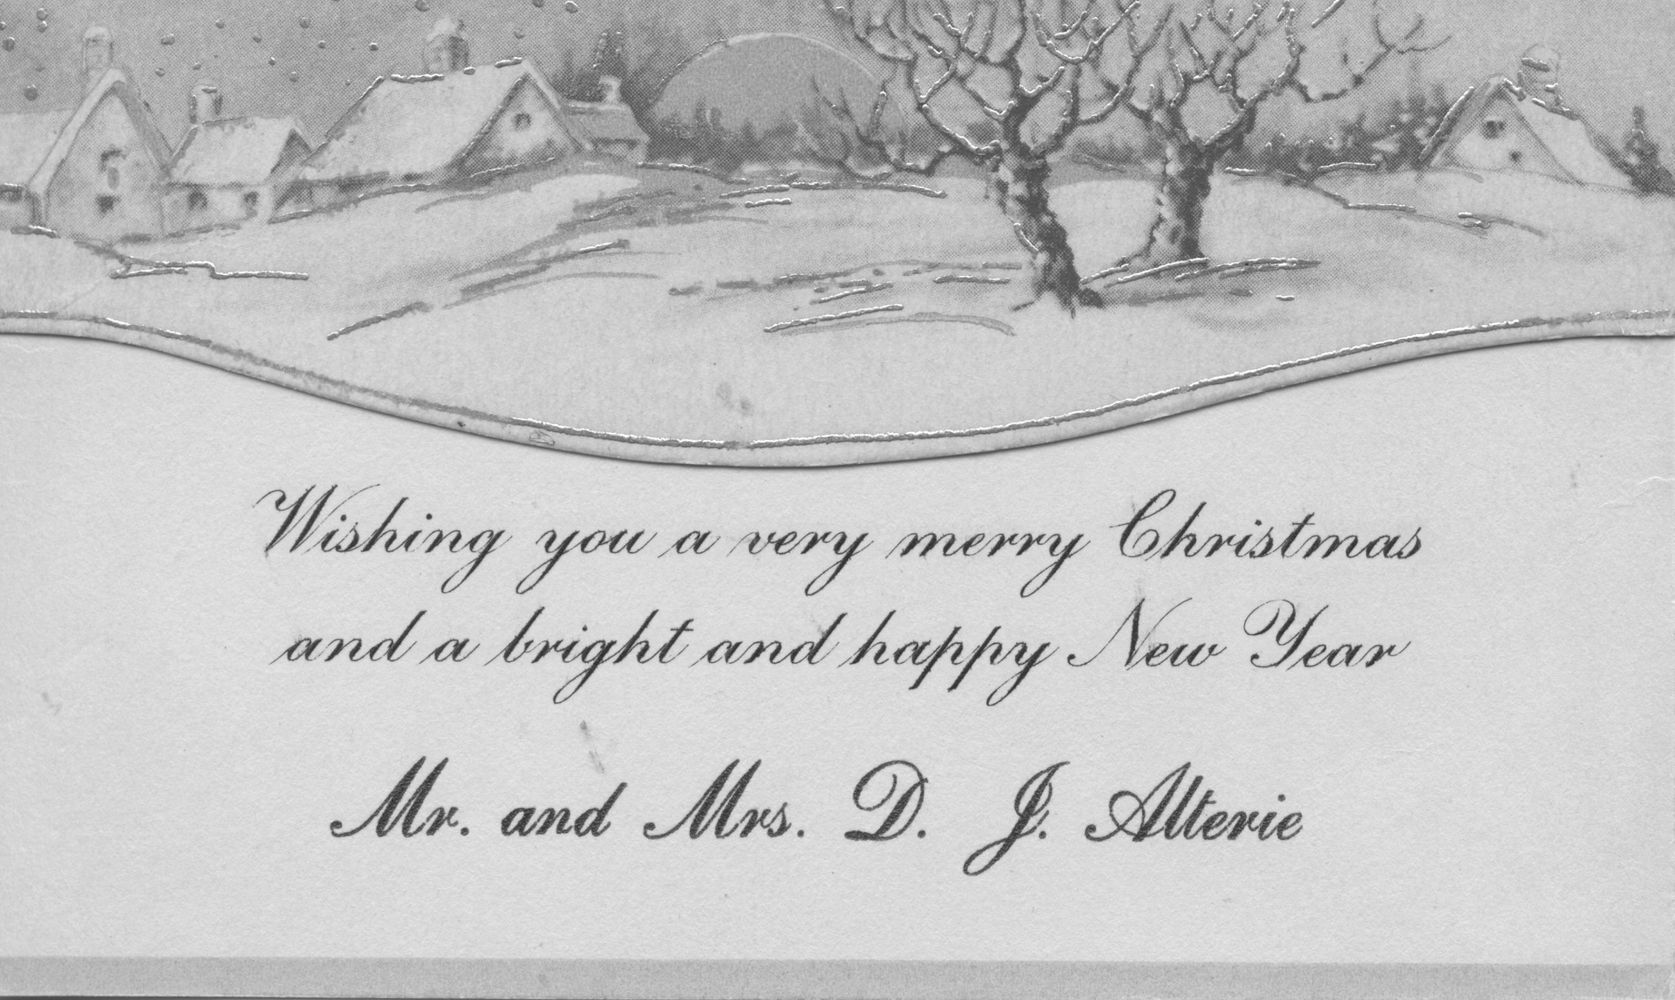 Wishing you a very merry Christmas
and a bright and happy New Year
Mr. and Mrs. D. J. Alterie